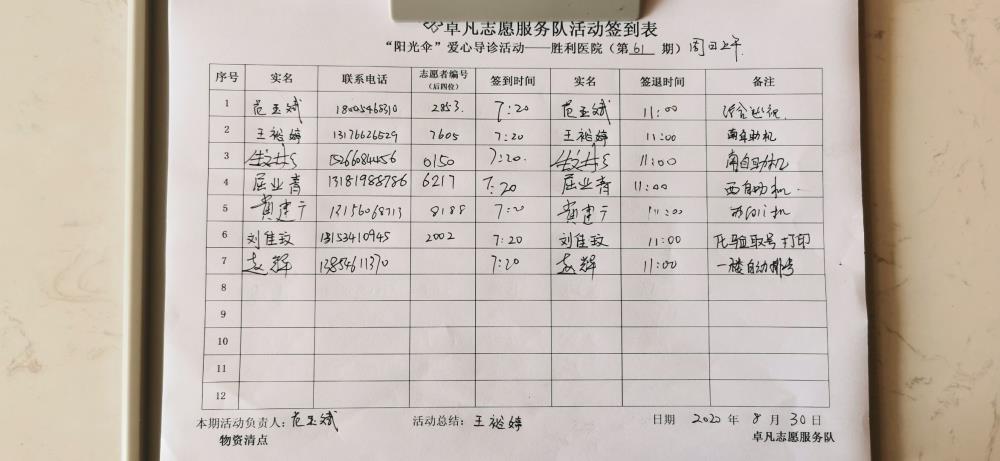 卓凡志愿服务队活动签到表
“阳光伞”爱心导诊活动——胜利医院（第61期）周日上午
序号 实名 联系电话 志愿者编号（后四位） 签到时间 实名 签退时间 备注
1 范玉斌 18005468310 2853. 7:20 范玉斌 11:00
2 王裕婷 13176626529 7605 7:20 王裕婷 11:00 南自助机
3 15266084456 0150 7:20. 11:00 南自助机
4 屈业青 13181988786 6217 7:20 屈业青 11:00 西自助机
5 黄建广 13156068713 8188 7:20 黄建广 11:00
6 刘佳玟 13153410945 2002 7:20 刘佳玟 11:00 化验取号打印
7 赵辉 13854611370 7:20 赵辉 11:00 一楼自动排号
8
9
10
11
12
本期活动负责人：范玉斌 活动总结：王裕婷 日期 2020年8月30日
物资清点 卓凡志愿服务队